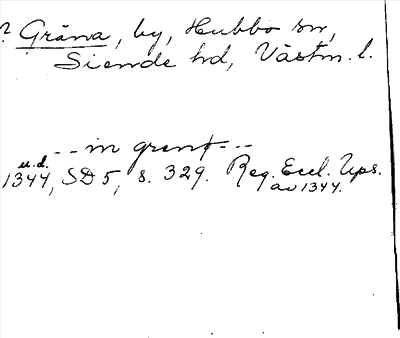 ? Gräna, by, Hubbo sn,
Siende hd, Västm. l.
-- in grenf --
u.d.
1344, SD 5, s. 329. Reg. Eccl. Ups.
av 1344.